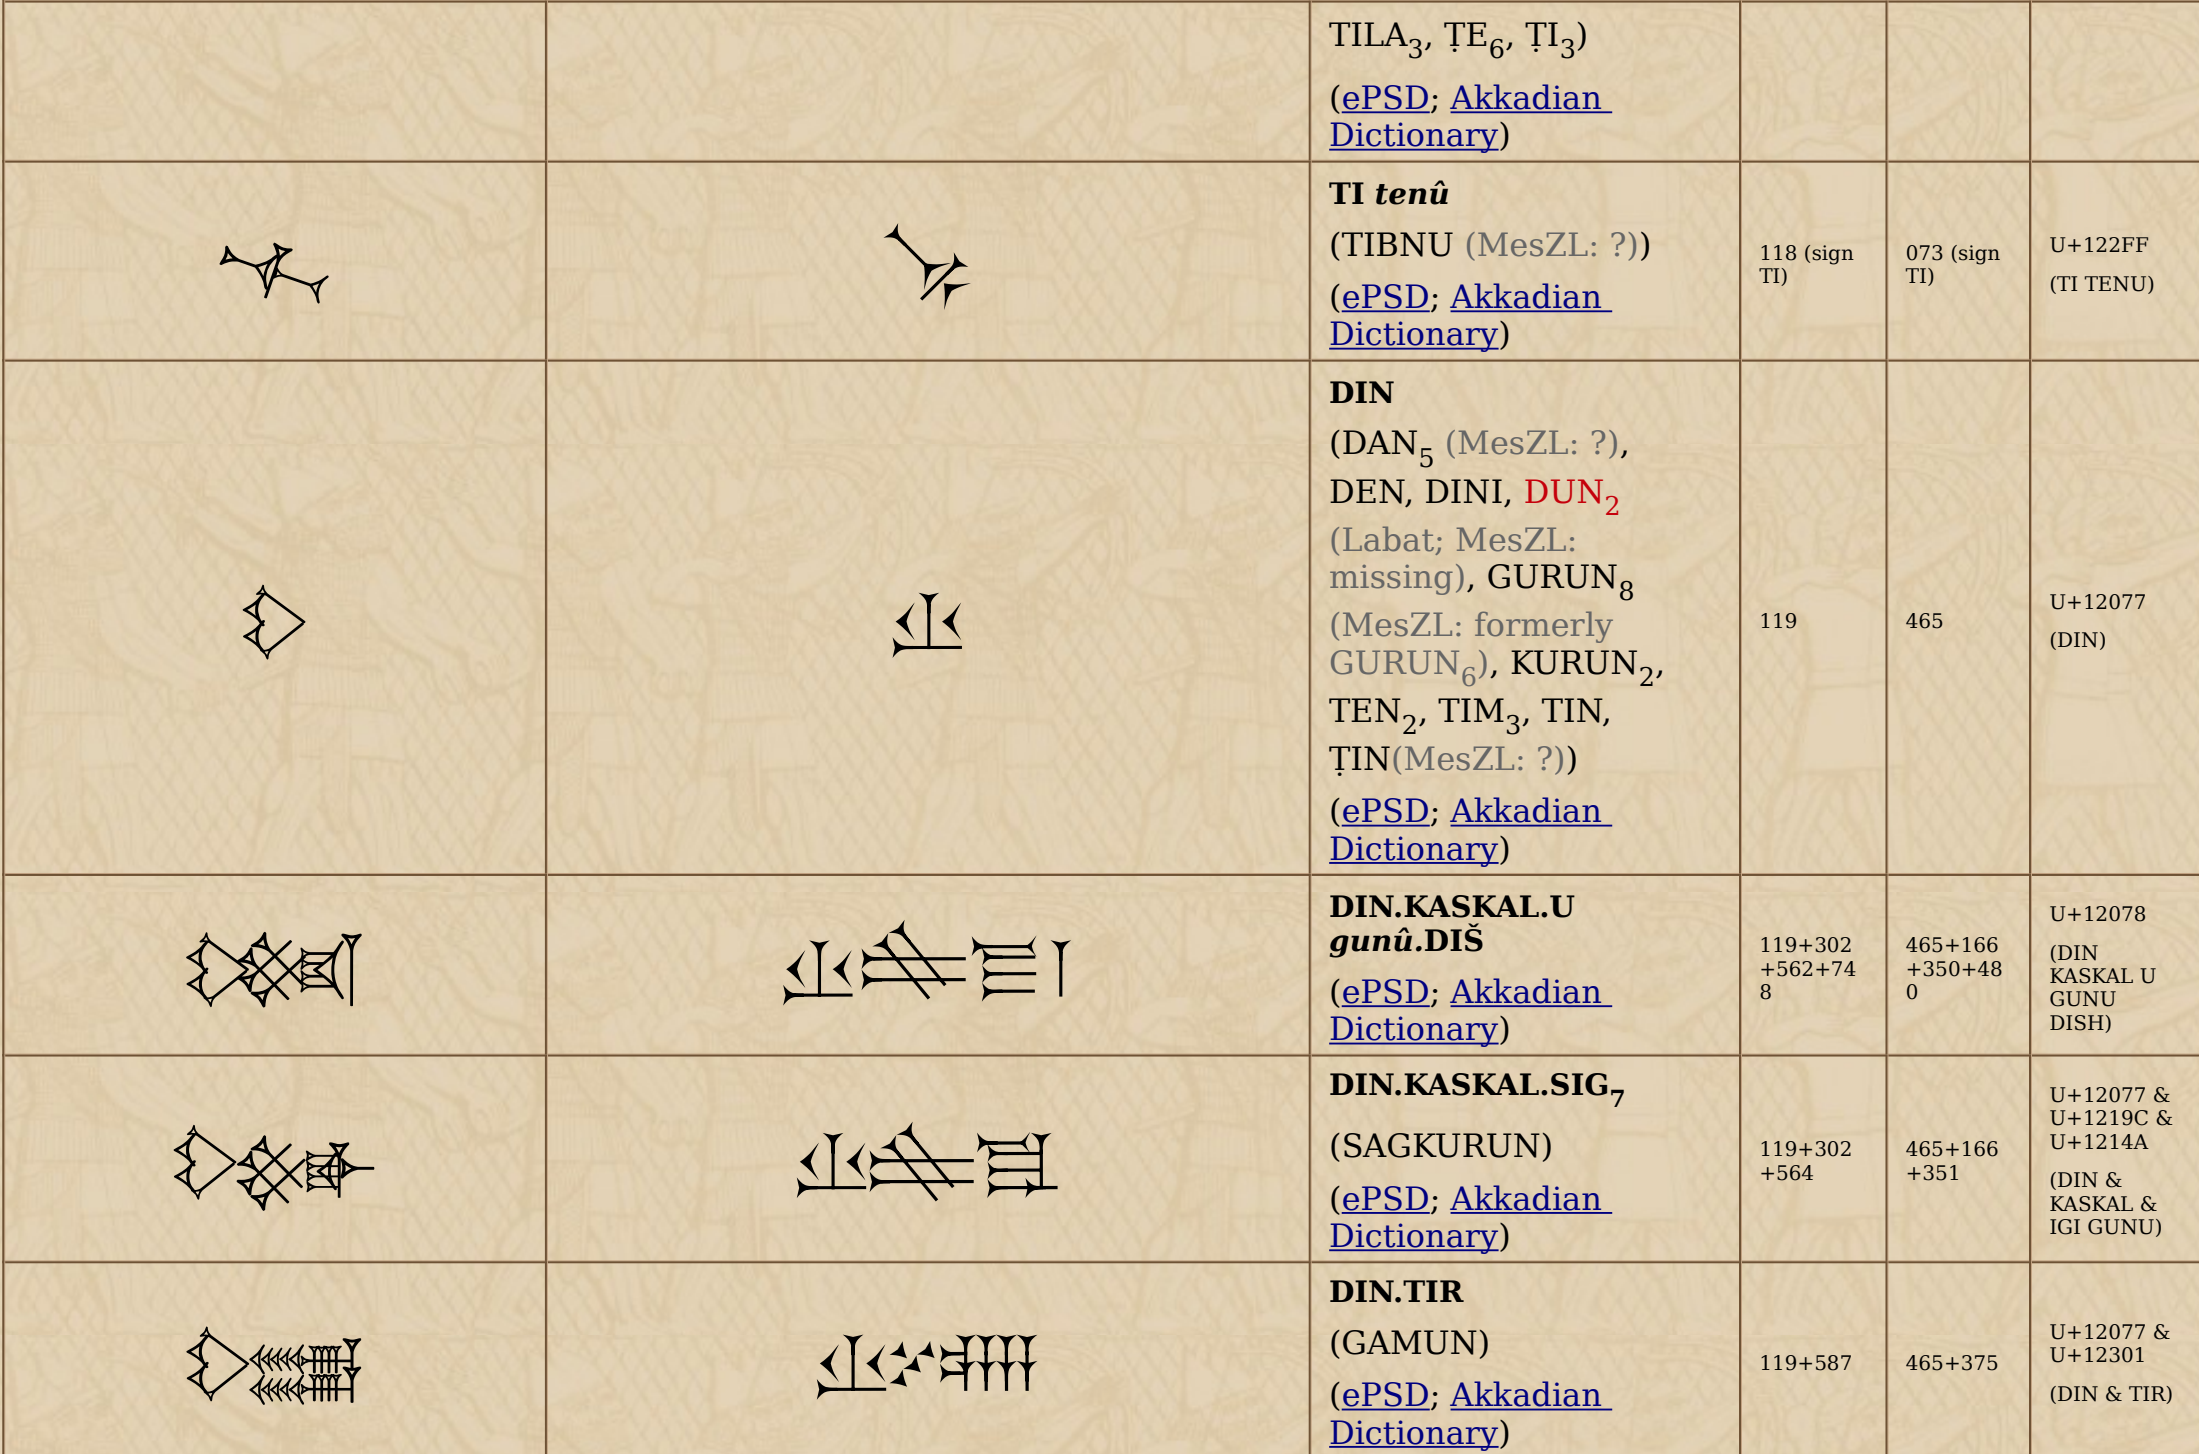 TILA₃, ṬE₆, ṬI₃)
(ePSD; Akkadian
Dictionary)
𒋿
TI tenû
(TIBNU (MesZL: ?))
(ePSD; Akkadian
Dictionary)
118 (sign
TI)
073 (sign
TI)
U+122FF
(TI TENU)
𒁷
DIN
(DAN₅ (MesZL: ?),
DEN, DINI, DUN₂
(Labat; MesZL:
missing), GURUN₈
(MesZL: formerly
GURUN₆), KURUN₂,
TEN₂, TIM₃, TIN,
ṬIN(MesZL: ?))
(ePSD; Akkadian
Dictionary)
119
465
U+12077
(DIN)
𒁸
DIN.KASKAL.U
gunû.DIŠ
(ePSD; Akkadian
Dictionary)
119+302
+562+74
8
465+166
+350+48
0
U+12078
(DIN
KASKAL U
GUNU
DISH)
𒁷𒆜𒅊
DIN.KASKAL.SIG₇
(SAGKURUN)
(ePSD; Akkadian
Dictionary)
119+302
+564
465+166
+351
U+12077 &
U+1219C &
U+1214A
(DIN &
KASKAL &
IGI GUNU)
𒁷𒌁
DIN.TIR
(GAMUN)
(ePSD; Akkadian
Dictionary)
119+587
465+375
U+12077 &
U+12301
(DIN & TIR)